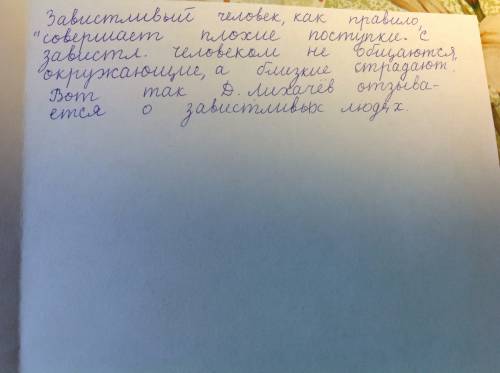 Завистливый человек, как правило,
"совершает плохие поступки. С
завистл. человеком не общаются,
окружающие, а близкие страдают.
Вот так Д. Лихачёв отзыва-
ется о завистливых людях.